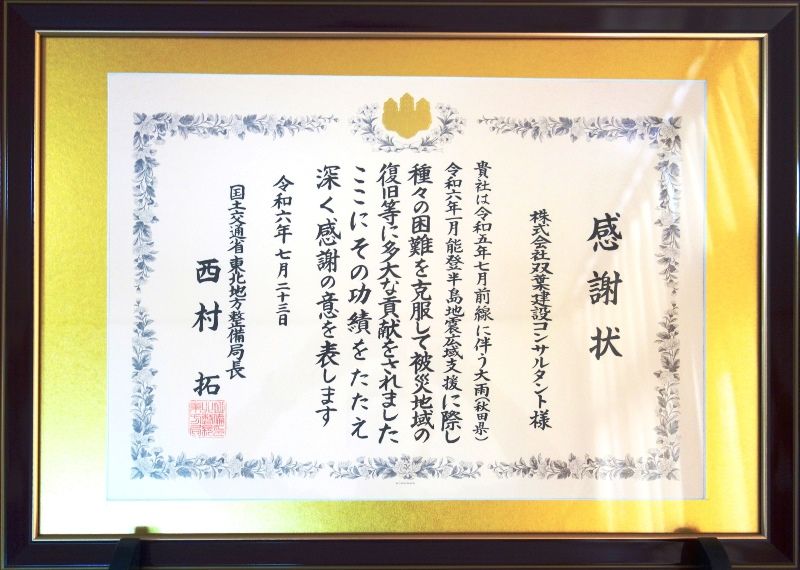 感謝状
株式会社双葉建設コンサルタント様
貴社は令和五年七月前線に伴う大雨(秋田県)
令和六年一月能登半島地震広域支援に際し
種々の困難を克服して被災地域の
復旧等に多大な貢献をされました
ここにその功績をたたえ
深く感謝の意を表します
令和六年七月二十三日
国土交通省東北地方整備局長
西村拓